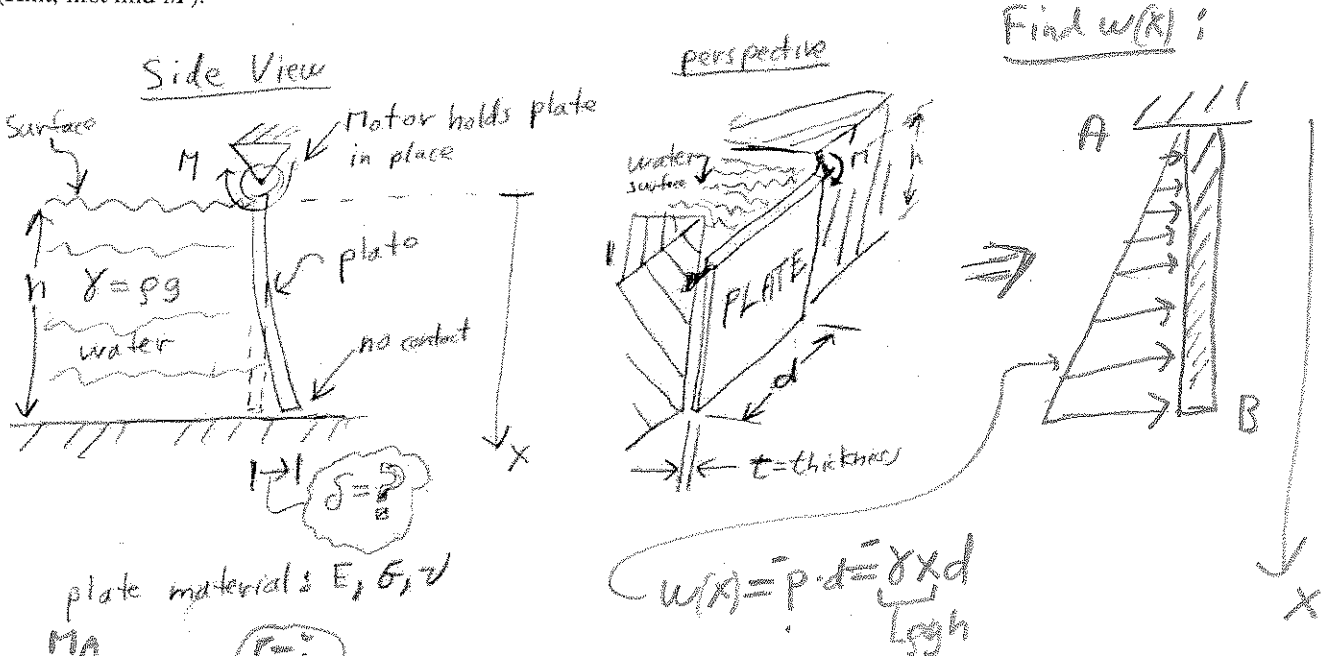 (Hint, first find M).
Side View
Surface
M
Motor holds plate
in place
h
γ = ρg
water
plate
no contact
x
δ = ?
plate material: E, G, ν
M_A
perspective
water
surface
M
h
PLATE
d
t = thickness
Find w(x):
A
B
x
w(x) = p·d = γxd
ρgh